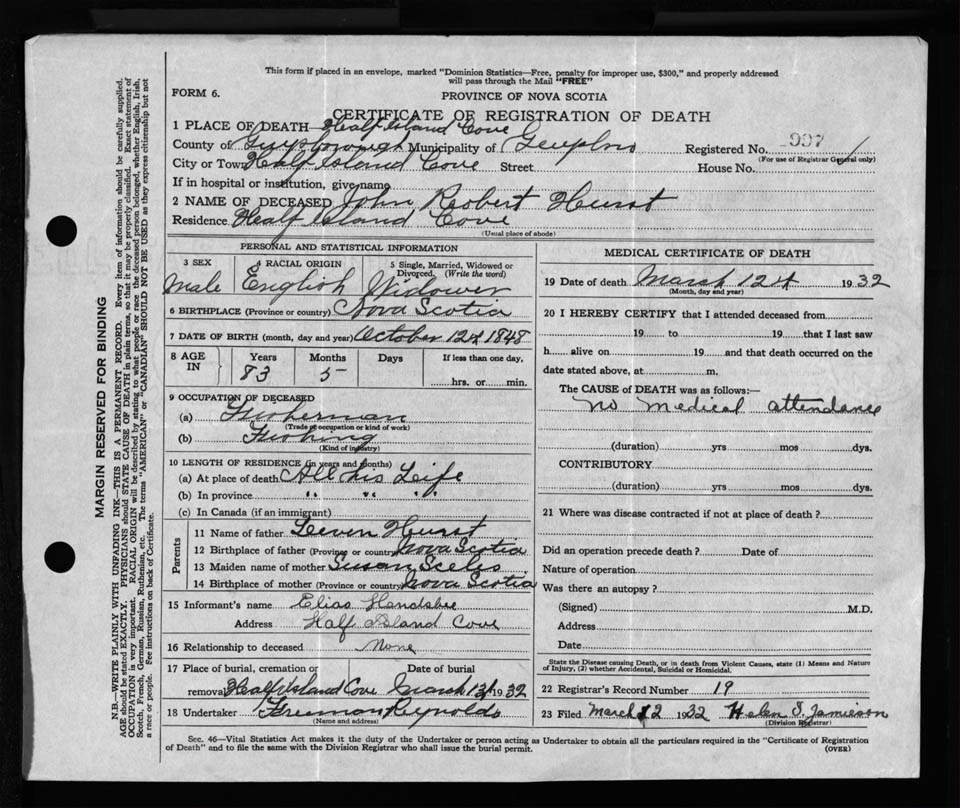 This form if placed in an envelope, marked "Dominion Statistics—Free, penalty for improper use, $300," and properly addressed
will pass through the Mail "FREE"
FORM 6.
PROVINCE OF NOVA SCOTIA
CERTIFICATE OF REGISTRATION OF DEATH
1 PLACE OF DEATH Half Island Cove
County of Guysborough Municipality of Registered No. 997
(For use of Registrar General only)
City or Town Half Island Cove Street House No.
If in hospital or institution, give name
2 NAME OF DECEASED John Robert Hurst
Residence Half Island Cove
(Usual place of abode)
PERSONAL AND STATISTICAL INFORMATION
3 SEX 4 RACIAL ORIGIN 5 Single, Married, Widowed or Divorced. (Write the word)
Male English Widower
6 BIRTHPLACE (Province or country) Nova Scotia
7 DATE OF BIRTH (month, day and year) October 12th 1848
8 AGE IN Years Months Days If less than one day,
83 5 hrs. or min.
9 OCCUPATION OF DECEASED
(a) Fisherman
(Trade or occupation or kind of work)
(b) Fishing
(Kind of industry)
10 LENGTH OF RESIDENCE (in years and months)
(a) At place of death All his Life
(b) In province " " "
(c) In Canada (if an immigrant)
Parents
11 Name of father Leven Hurst
12 Birthplace of father (Province or country) Nova Scotia
13 Maiden name of mother Susan
14 Birthplace of mother (Province or country) Nova Scotia
15 Informant's name Elias Handsbee
Address Half Island Cove
16 Relationship to deceased None
17 Place of burial, cremation or Date of burial
removal Half Island Cove March 13 1932
18 Undertaker Freeman Reynolds
(Name and address)
MEDICAL CERTIFICATE OF DEATH
19 Date of death March 12th 1932
(Month, day and year)
20 I HEREBY CERTIFY that I attended deceased from
19 to 19 that I last saw
h alive on 19 and that death occurred on the
date stated above, at m.
The CAUSE of DEATH was as follows:—
No medical attendance
(duration) yrs mos dys.
CONTRIBUTORY
(duration) yrs mos dys.
21 Where was disease contracted if not at place of death?
Did an operation precede death? Date of
Nature of operation
Was there an autopsy?
(Signed) M.D.
Address
Date
State the Disease causing Death, or in death from Violent Causes, state (1) Means and Nature
of Injury, (2) whether Accidental, Suicidal or Homicidal.
22 Registrar's Record Number 19
23 Filed March 12 1932 Helen S. Jamieson
(Division Registrar)
Sec. 46—Vital Statistics Act makes it the duty of the Undertaker or person acting as Undertaker to obtain all the particulars required in the "Certificate of Registration
of Death" and to file the same with the Division Registrar who shall issue the burial permit.
(OVER)
MARGIN RESERVED FOR BINDING
N.B.—WRITE PLAINLY WITH UNFADING INK—THIS IS A PERMANENT RECORD. Every item of information should be carefully supplied.
AGE should be stated EXACTLY. PHYSICIANS should STATE CAUSE OF DEATH in plain terms, so that it may be properly classified. Exact statement of
OCCUPATION is very important. RACIAL ORIGIN will be described by stating to what people or race the deceased person belonged, whether English, Irish,
Scotch, French, German, Russian, Ruthenian, etc. The terms "AMERICAN" or "CANADIAN" SHOULD NOT BE USED as they express citizenship but not
a race or people. See instructions on back of Certificate.